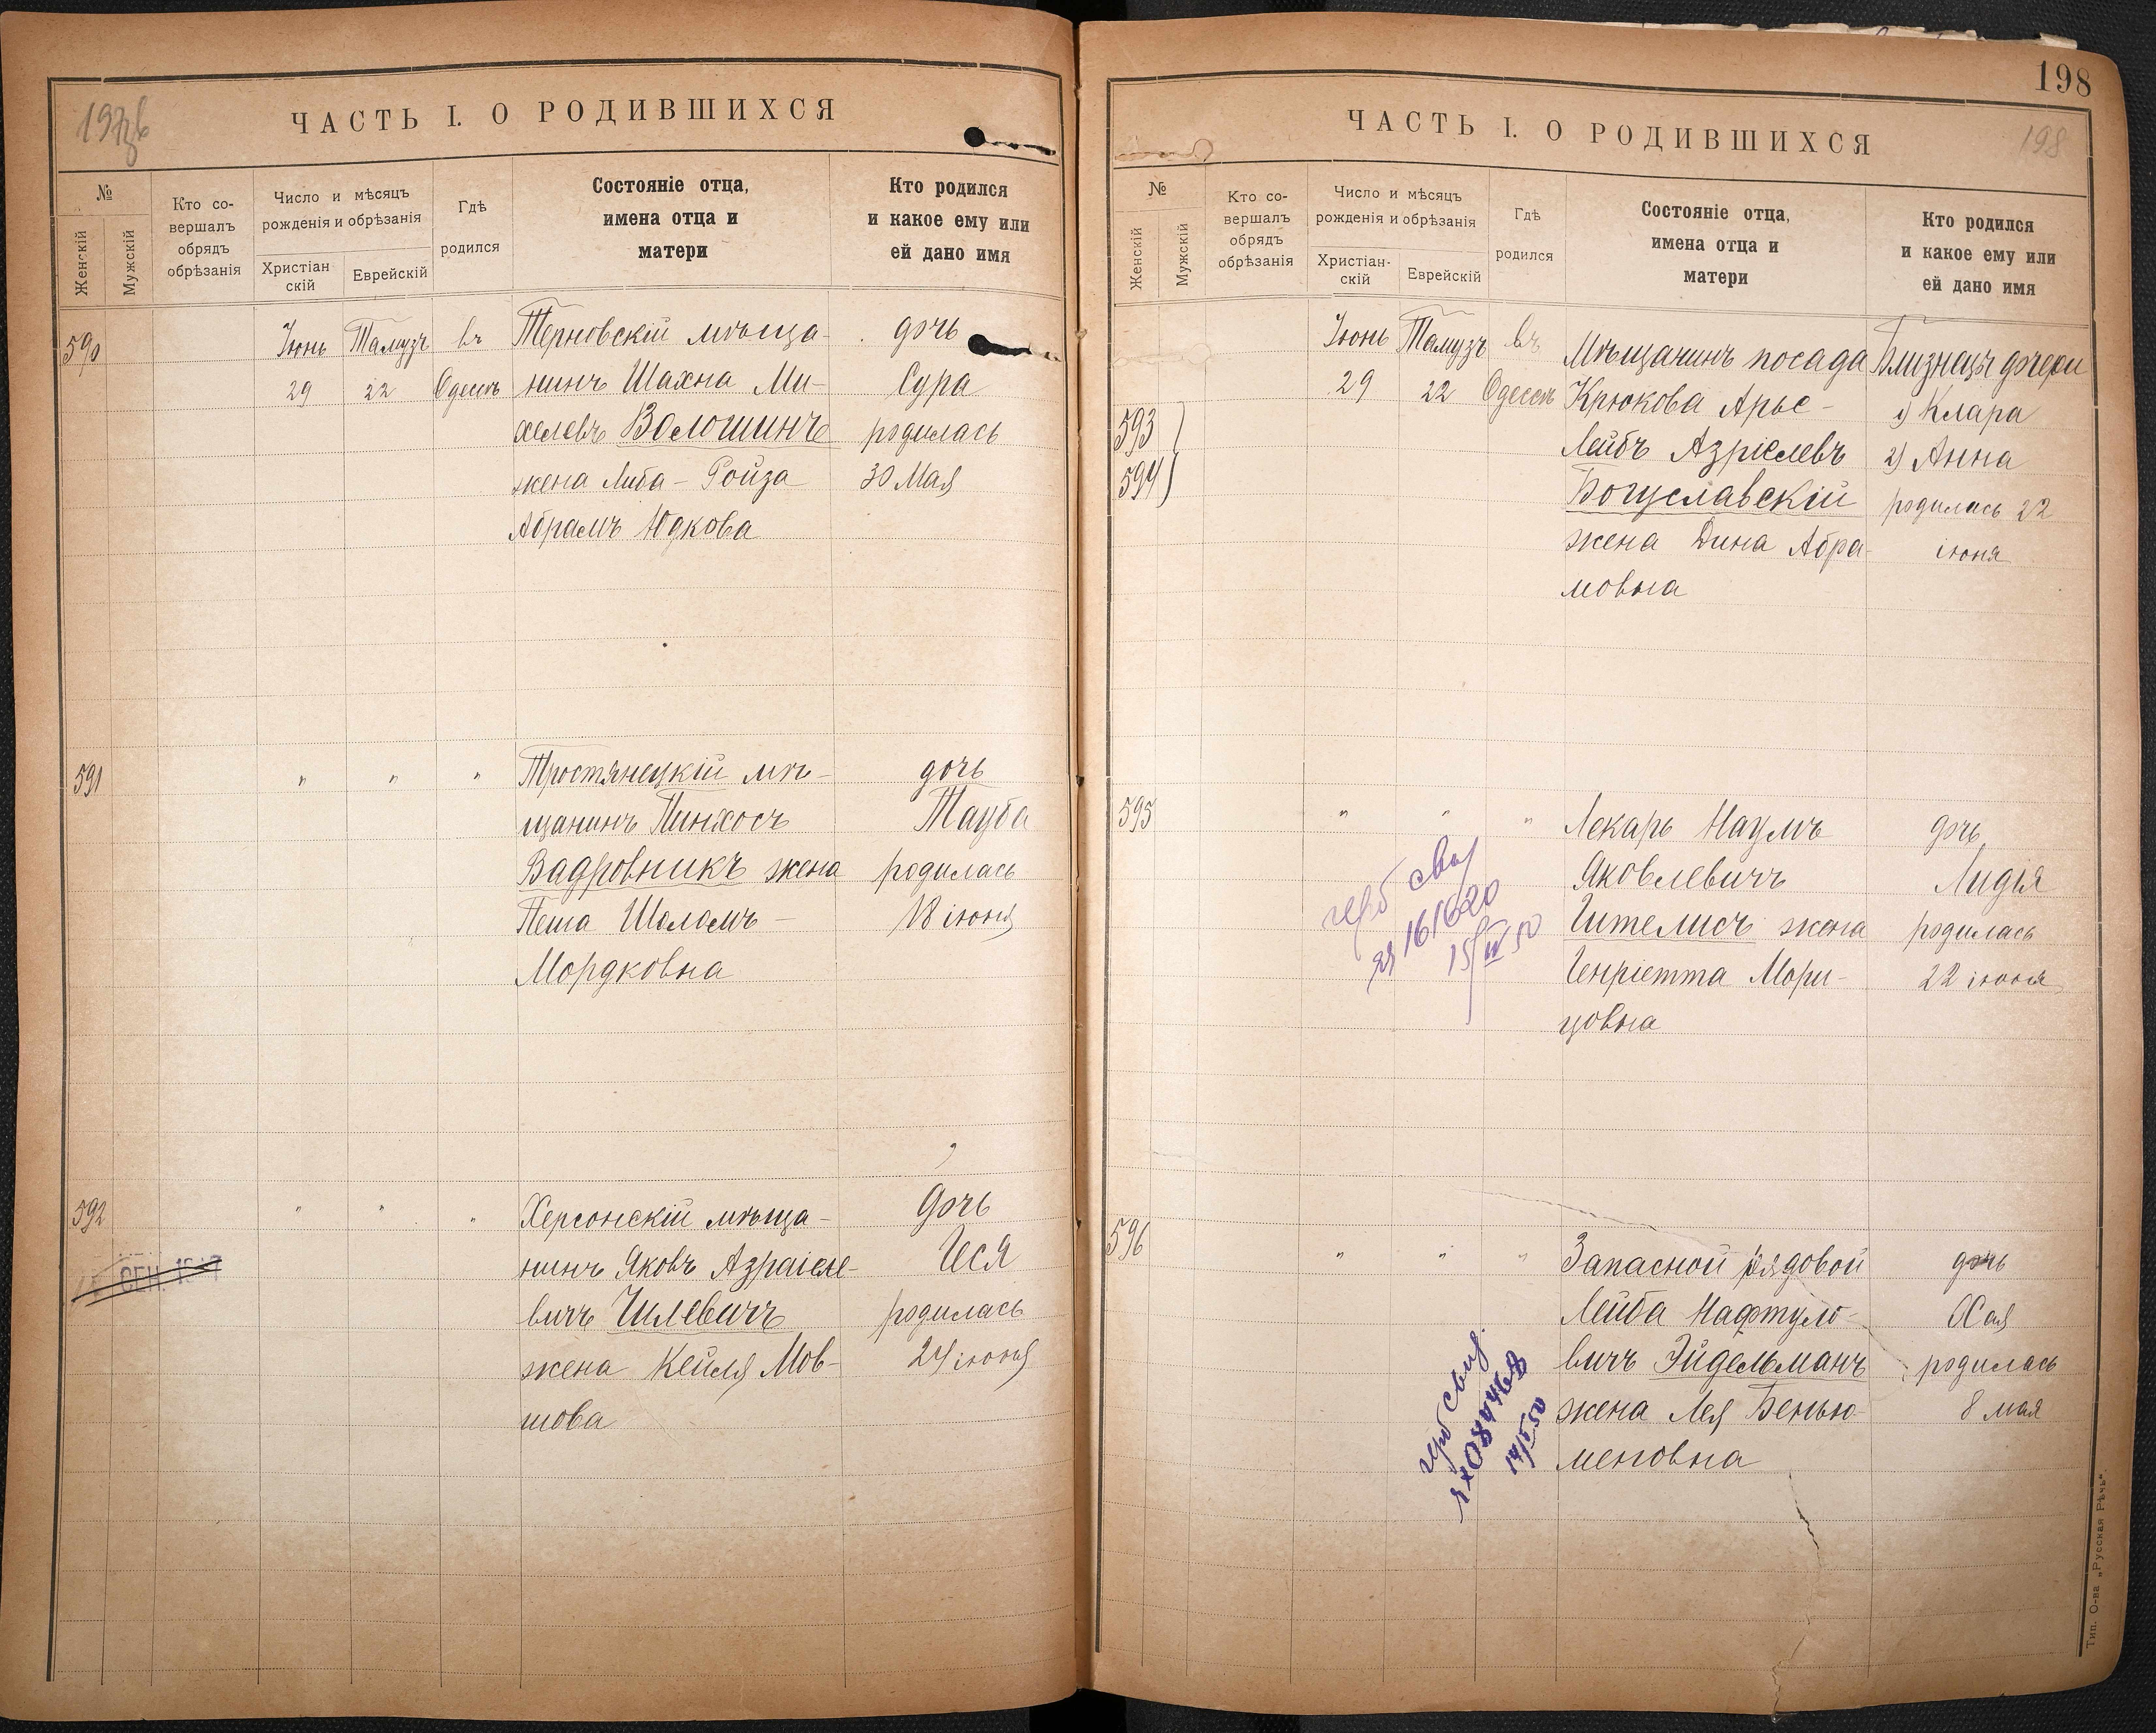 ЧАСТЬ I. О РОДИВШИХСЯ
№
Женскій
Мужскій
Кто со-
вершалъ
обрядъ
обрѣзанія
Число и мѣсяцъ
рожденія и обрѣзанія
Христіан
скій
Еврейскій
Гдѣ
родился
Состояніе отца,
имена отца и
матери
Кто родился
и какое ему или
ей дано имя
590 Іюнь Тамузъ въ Терновскій мѣща- дочь
29 22 Одессѣ нинъ Шахна Ми- Сура
хелевъ Волошинъ родилась
жена Либа-Ройза 30 Мая
Абрамъ Юдкова
591 " " " Тростянецкій мѣ- дочь
щанинъ Пинхосъ Тауба
Вадровникъ жена родилась
Песша Шоломъ- 18 іюня
Мордковна
592 " " " Херсонскій мѣща- дочь
нинъ Яковъ Азраіеле- Іеся
вичъ Гилевичъ родилась
жена Кейля Мов- 24 іюня
шова
СЕН.
198
ЧАСТЬ I. О РОДИВШИХСЯ
198
№
Женскій
Мужскій
Кто со-
вершалъ
обрядъ
обрѣзанія
Число и мѣсяцъ
рожденія и обрѣзанія
Христіан-
скій
Еврейскій
Гдѣ
родился
Состояніе отца,
имена отца и
матери
Кто родился
и какое ему или
ей дано имя
Іюнь Тамузъ въ Мѣщанинъ посада Близнецы дочери
29 22 Одессѣ Крюкова Арье- 1) Клара
593 Лейбъ Азріелевъ 2) Анна
594 Богуславскій родилась 22
жена Дина Абра- іюня
мовна
595 " " " Лекарь Наумъ дочь
Яковлевичъ Лидія
Гителисъ жена родилась
Генріетта Мори- 22 іюня
цовна
161620
15/IV 50
596 " " " Запасной рядовой дочь
Лейба Нафтуло- Хая
вичъ Эйдельманъ родилась
жена Лея Бенью- 8 мая
меновна
Тип. О-ва „Русская Рѣчь“.